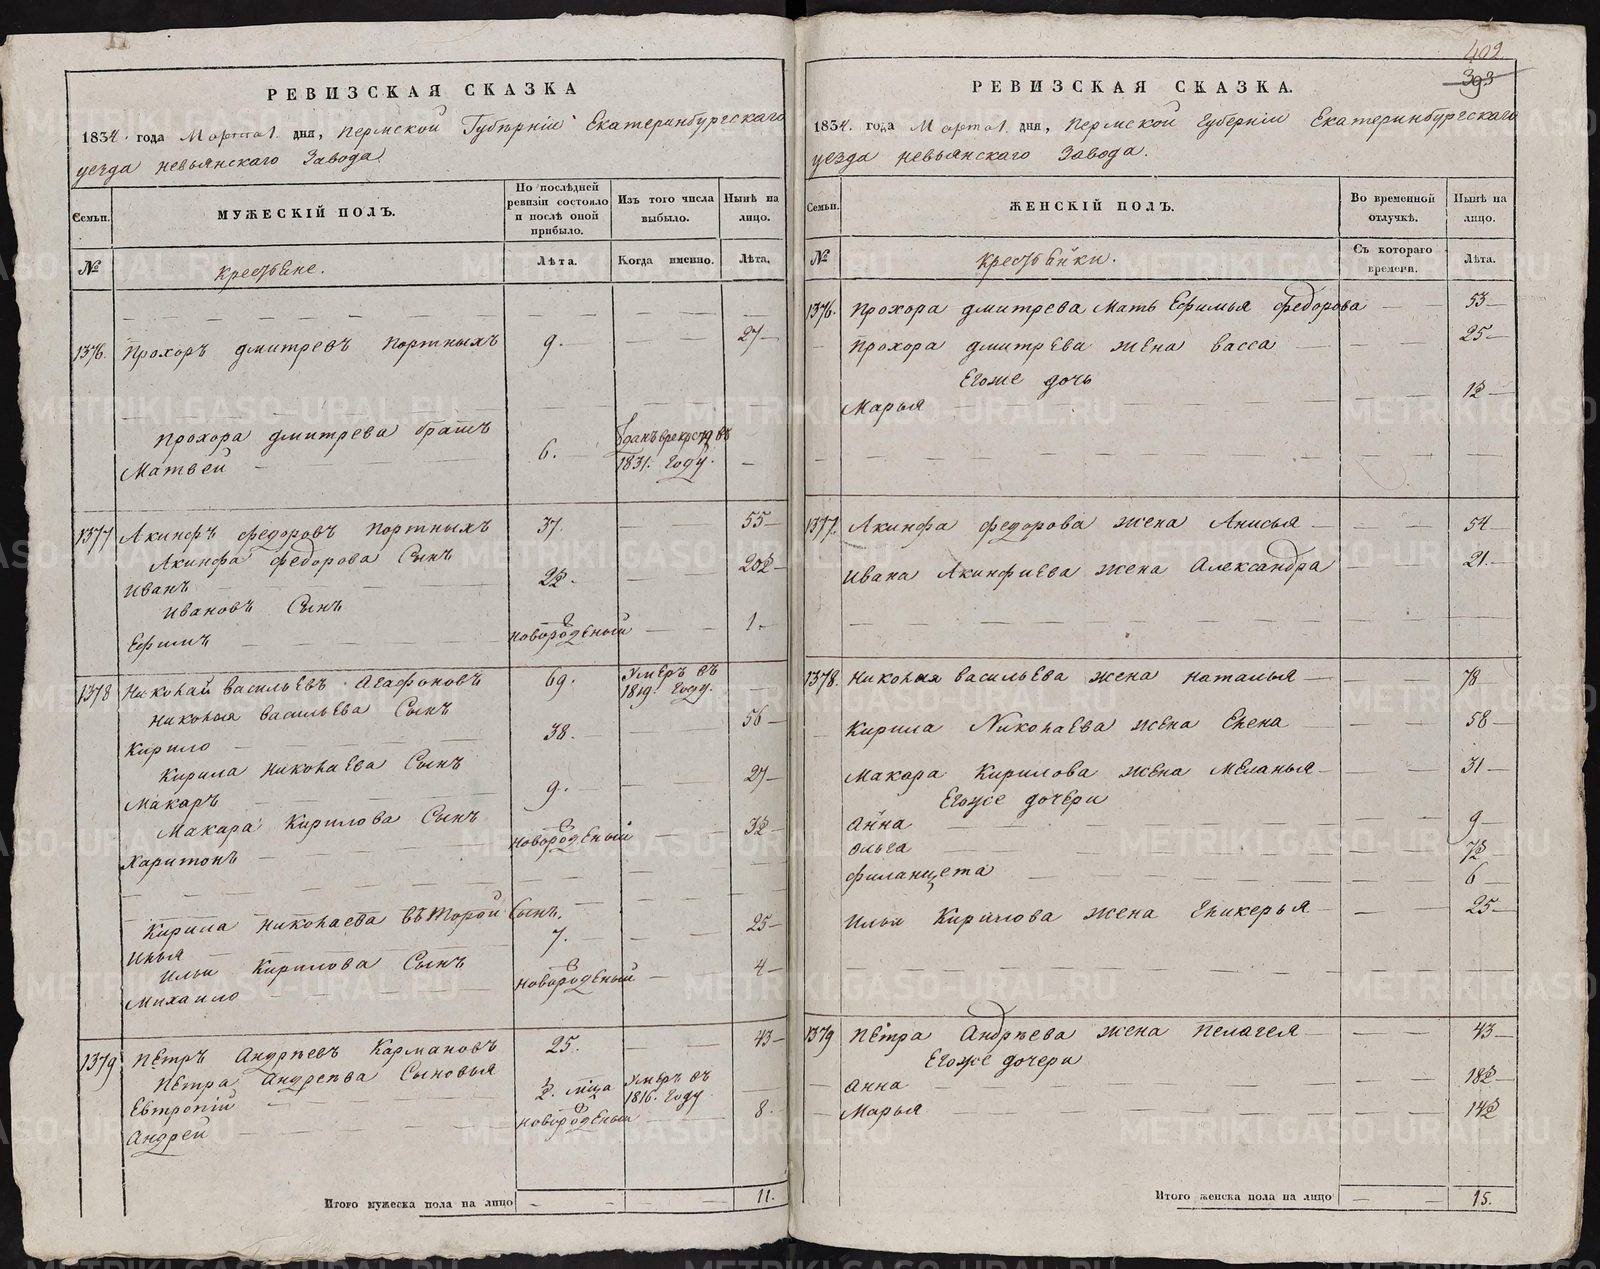 402
393
РЕВИЗСКАЯ СКАЗКА
1834. года Марта 1. дня, Пермской Губѣрніи Екатеринбургскаго
уезда невьянскаго Завода.
Семьи.
МУЖЕСКІЙ ПОЛЪ.
По послѣдней ревизіи состояло и послѣ оной прибыло.
Изъ того числа выбыло.
Нынѣ на лицо.
№
Крестьяне.
Лѣта.
Когда именно.
Лѣта.
1376. Прохоръ дмитревъ Портныхъ 9. 27
Прохора дмитрева братъ
Матвей 6. 1831. Году.
1377 Акинфъ федоровъ Портныхъ 37. 55
Акинфа федорова Сынъ
Иванъ 2½. 20½
Ивановъ Сынъ
Ефимъ новорожденый 1.
1378 Николай васильевъ Агафоновъ 69. Умеръ въ 1819. Году.
Николая васильева Сынъ
Кирило 38. 56
Кирила николаева Сынъ
Макаръ 9. 27
Макара Кирилова Сынъ
Харитонъ новорожденый 3½
Кирила николаева второй Сынъ.
Илья 7. 25
Ильи Кирилова Сынъ
Михаило новорожденый 4
1379 Пётръ Андреевъ Кармановъ 25. 43
Пётра Андреева Сыновья
Евтропій ½. мца Умеръ въ 1816. Году
Андрей новорожденый 8.
Итого мужеска пола на лицо 11.
РЕВИЗСКАЯ СКАЗКА.
1834. года Марта 1. дня, Пермской Губерніи Екатеринбургскаго
уезда невьянскаго Завода.
Семьи.
ЖЕНСКІЙ ПОЛЪ.
Во временной отлучкѣ.
Нынѣ на лицо.
№
Крестьянки.
Съ котораго времени.
Лѣта.
1376. Прохора дмитрева Мать Ефимья федорова 53
Прохора дмитрева жена васса 25
Егоже дочь
Марья 1½
1377. Акинфа федорова жена Анисья 54
Ивана Акинфиева жена Александра 21.
1378. Николая васильева жена наталья 78
Кирила Николаева жена Елена 58
Макара Кирилова жена Меланья 31
Егоже дочери
Анна 9
Ольга 7½
Филанцета 6
Ильи Кирилова жена Гликерья 25
1379 Пётра Андреева жена Пелагея 43
Егоже дочери
Анна 18½
Марья 14½
Итого женска пола на лицо 15.
METRIKI.GASO-URAL.RU